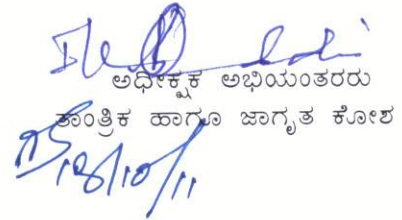 ಅಧೀಕ್ಷಕ ಅಭಿಯಂತರರು
ತಾಂತ್ರಿಕ ಹಾಗೂ ಜಾಗೃತ ಕೋಶ
18/10/11